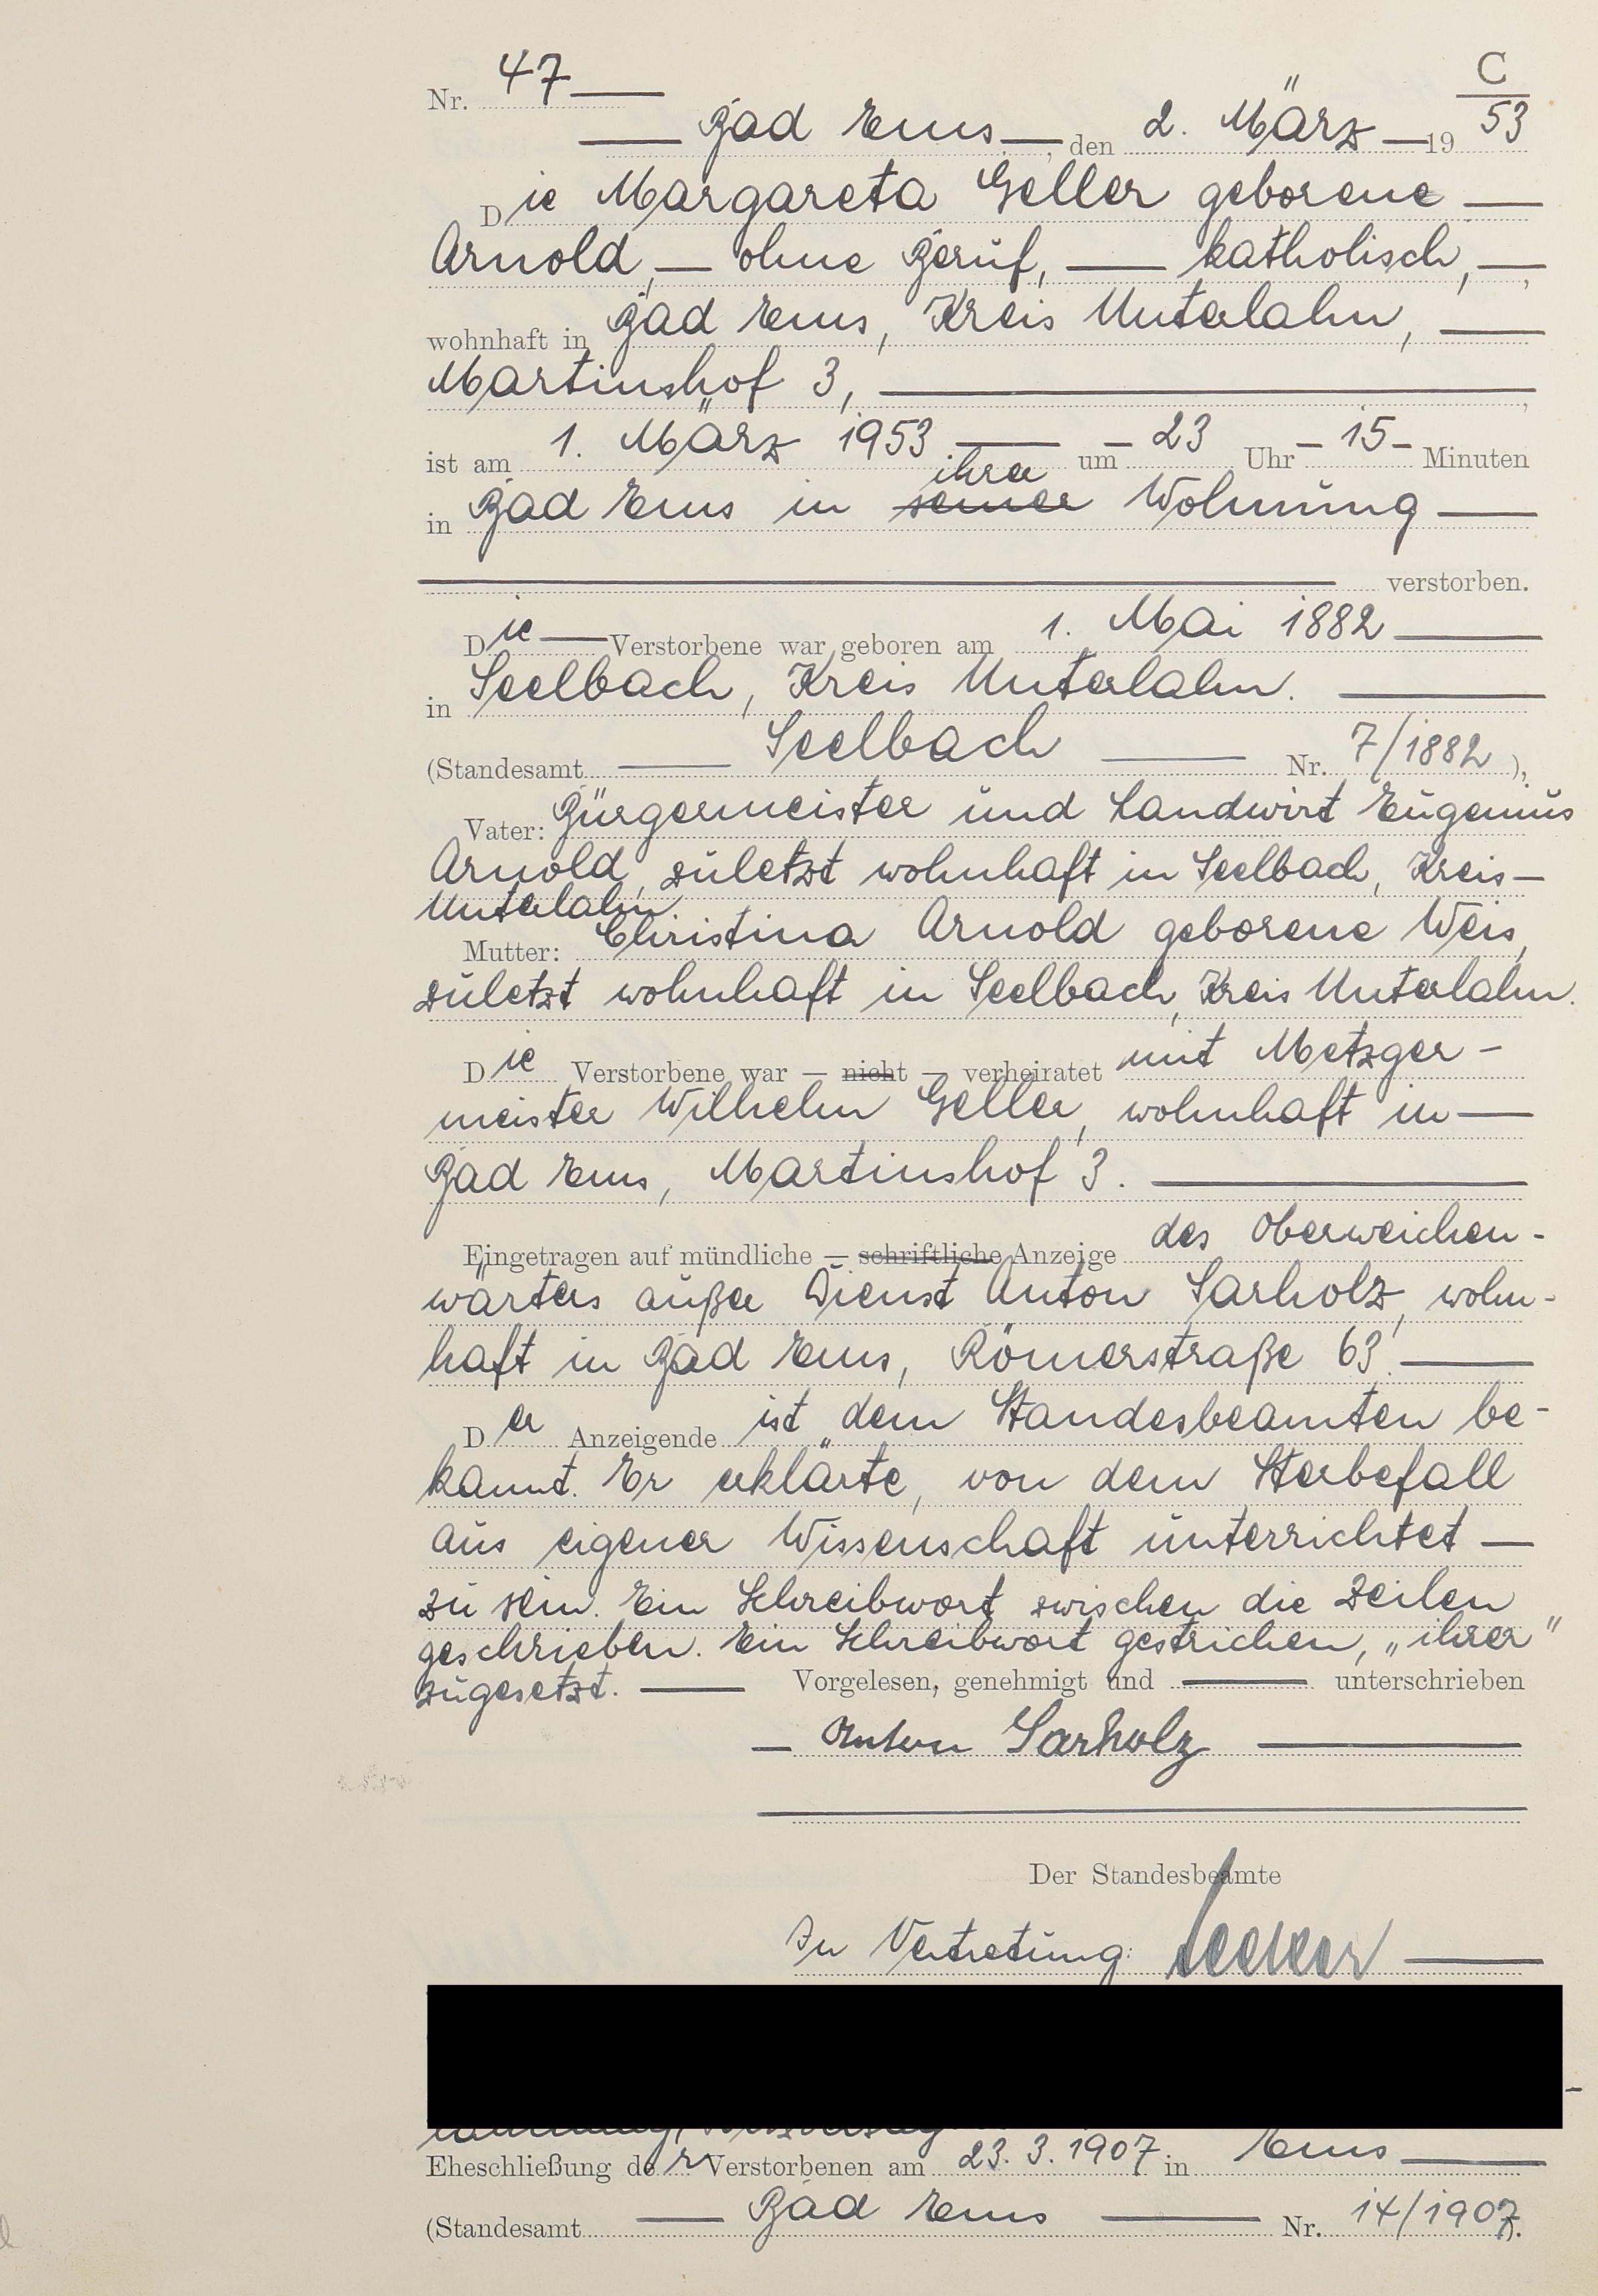 C
Nr. 47
Bad Ems, den 2. März 19 53
Die Margareta Geller geborene
Arnold, ohne Beruf, katholisch,
wohnhaft in Bad Ems, Kreis Unterlahn,
Martinshof 3,
ist am 1. März 1953 um 23 Uhr 15 Minuten
ihrer
in Bad Ems in seiner Wohnung
verstorben.
Die Verstorbene war geboren am 1. Mai 1882
in Seelbach, Kreis Unterlahn.
(Standesamt Seelbach Nr. 7/1882),
Vater: Bürgermeister und Landwirt Eugenius
Arnold, zuletzt wohnhaft in Seelbach, Kreis
Unterlahn.
Mutter: Christina Arnold geborene Weis,
zuletzt wohnhaft in Seelbach, Kreis Unterlahn.
Die Verstorbene war — nicht — verheiratet mit Metzger-
meister Wilhelm Geller, wohnhaft in
Bad Ems, Martinshof 3.
Eingetragen auf mündliche — schriftliche Anzeige des Oberweichen-
wärters außer Dienst Anton Sarholz, wohn-
haft in Bad Ems, Römerstraße 63.
Der Anzeigende ist dem Standesbeamten be-
kannt. Er erklärte, von dem Sterbefall
aus eigener Wissenschaft unterrichtet
zu sein. Ein Schreibwort zwischen die Zeilen
geschrieben. Ein Schreibwort gestrichen, „ihrer"
zugesetzt. Vorgelesen, genehmigt und unterschrieben
Anton Sarholz
Der Standesbeamte
In Vertretung:
Eheschließung der Verstorbenen am 23. 3. 1907 in Ems
(Standesamt Bad Ems Nr. 14/1907).